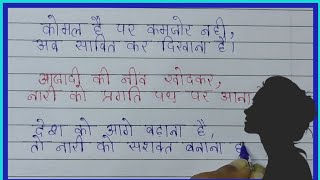 कोमल है पर कमजोर नही,
अब साबित कर दिखाना है।
आजादी की नीव खोदकर,
नारी को प्रगति पथ पर आना
देश को आगे बढ़ाना है,
तो नारी को सशक्त बनाना है